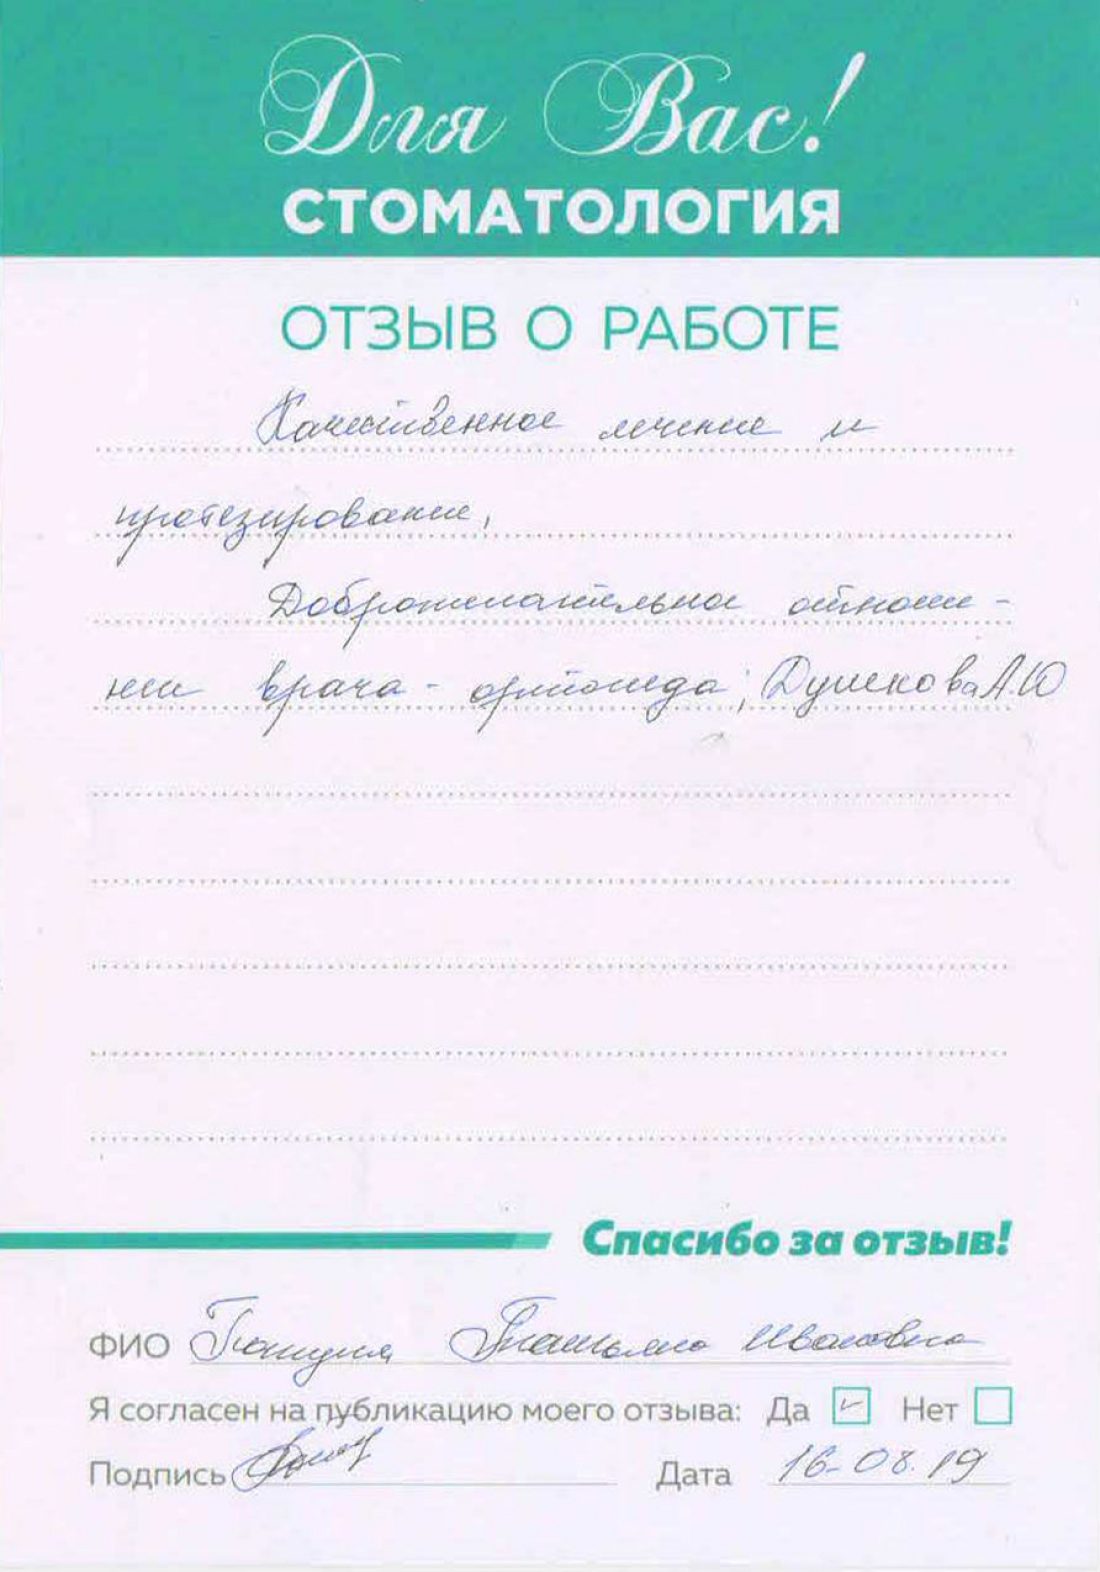 Для Вас!
СТОМАТОЛОГИЯ
ОТЗЫВ О РАБОТЕ
Качественное лечение и
протезирование,
Доброжелательное отноше-
ние врача-ортопеда; Душкова А.Ю
Спасибо за отзыв!
ФИО Татьяна Ивановна
Я согласен на публикацию моего отзыва: Да ✓ Нет
Подпись Дата 16-08.19